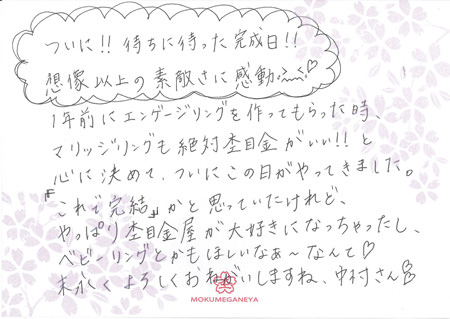 ついに!! 待ちに待った完成日!!
想像以上の素敵さに感動♡
1年前にエンゲージリングを作ってもらった時、
マリッジリングも絶対杢目金がいい!! と
心に決めて、ついにこの日がやってきました。
『これで完結』かと思っていたけれど、
やっぱり杢目金屋が大好きになっちゃったし、
ベビーリングとかもほしいなぁ〜なんて♡
末永くよろしくおねがいしますね、中村さん
MOKUMEGANEYA